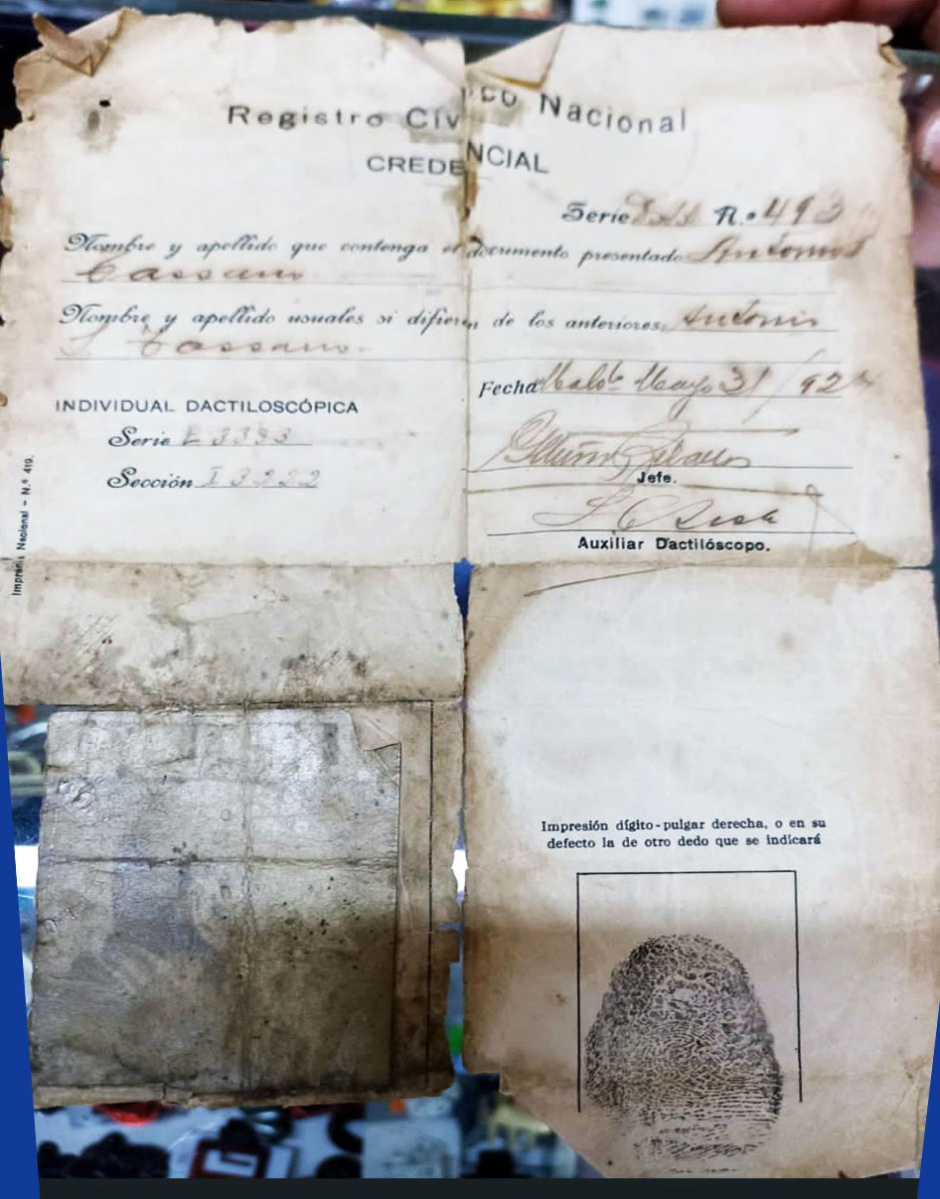 Registro Cív co Nacional
CREDENCIAL
Serie N.º 493
Nombre y apellido que contenga el documento presentado Antonio
Cassano
Nombre y apellido usuales si difieren de los anteriores Antonio
Cassano.
Fecha Mayo 31/92
INDIVIDUAL DACTILOSCÓPICA
Serie E 3333
Sección I 3222
Jefe.
Auxiliar Dactilóscopo.
Imprenta Nacional - N.º 419.
Impresión dígito-pulgar derecha, o en su
defecto la de otro dedo que se indicará